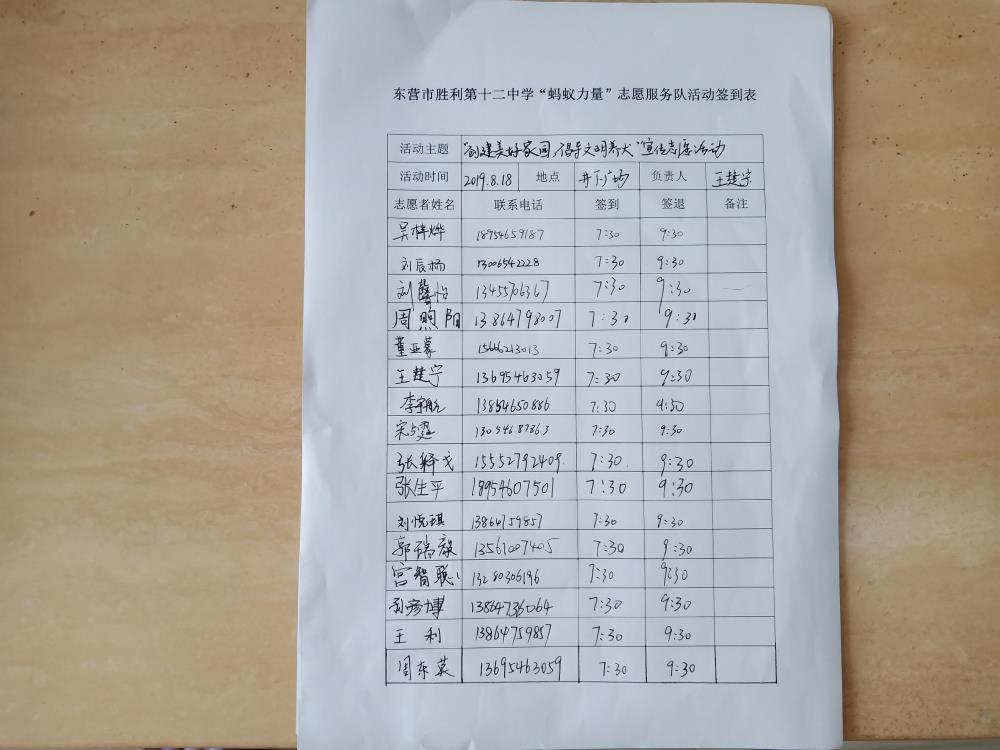 东营市胜利第十二中学“蚂蚁力量”志愿服务队活动签到表
活动主题 “创建美好家园，倡导文明养犬”宣传志愿活动
活动时间 2019.8.18 地点 井下广场 负责人 王楚宁
志愿者姓名 联系电话 签到 签退 备注
吴梓烨 18954659187 7:30 9:30
刘辰杨 13006542228 7:30 9:30
刘馨怡 13455706367 7:30 9:30
周煦阳 13864798007 7:30 9:30
董亚蒙 15666213013 7:30 9:30
王楚宁 13695463059 7:30 9:30
李宇航 13854650886 7:30 9:30
宋雯 13054687863 7:30 9:30
张释戈 15552792409 7:30 9:30
张生平 18954607501 7:30 9:30
刘悦琪 13864759857 7:30 9:30
郭瑞毅 13561007405 7:30 9:30
宫智聪 13280306196 7:30 9:30
孙彦博 13864736064 7:30 9:30
王利 13864759857 7:30 9:30
周东英 13695463059 7:30 9:30